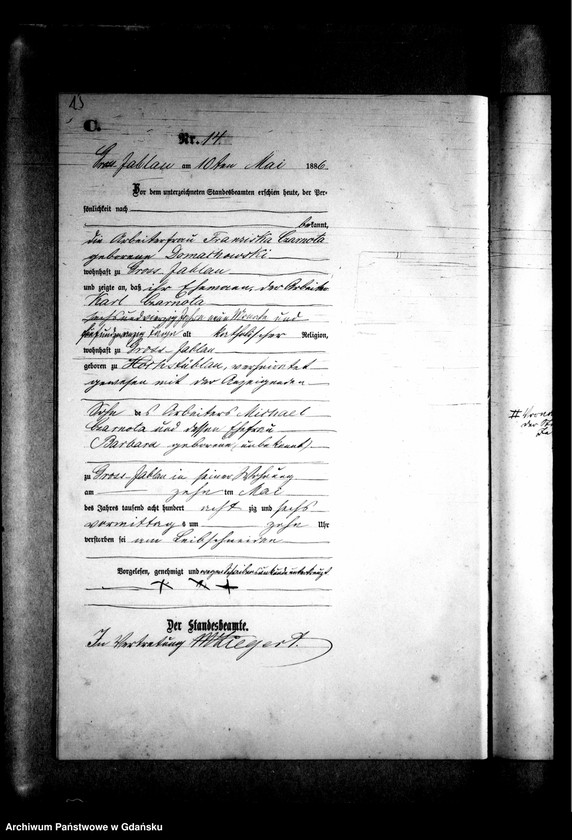 13
C.
Nr. 14.
Gross Jablau am 10ten Mai 1886.
Vor dem unterzeichneten Standesbeamten erschien heute, der Per-
sönlichkeit nach
bekannt,
die Arbeiterfrau Franziska Czarnota
geborene Domachowski
wohnhaft zu Gross Jablau
und zeigte an, daß ihr Ehemann, der Arbeiter
Karl Czarnota
sechsundvierzig Jahr ein Monate und
fünfundzwanzig Tage alt katholischer Religion,
wohnhaft zu Gross Jablau
geboren zu Hochstüblau, verheirathet
gewesen mit der Anzeigenden
Sohn des Arbeiters Michael
Czarnota und dessen Ehefrau
Barbara geborene (unbekannt)
zu Gross Jablau in seiner Wohnung
am zehn ten Mai
des Jahres tausend acht hundert acht zig und sechs
vormittags um zehn Uhr
verstorben sei am Leibschneiden
Vorgelesen, genehmigt und wegen Schreibensunkunde unterkreuzt
+ + +
Der Standesbeamte.
In Vertretung
der
Archiwum Państwowe w Gdańsku